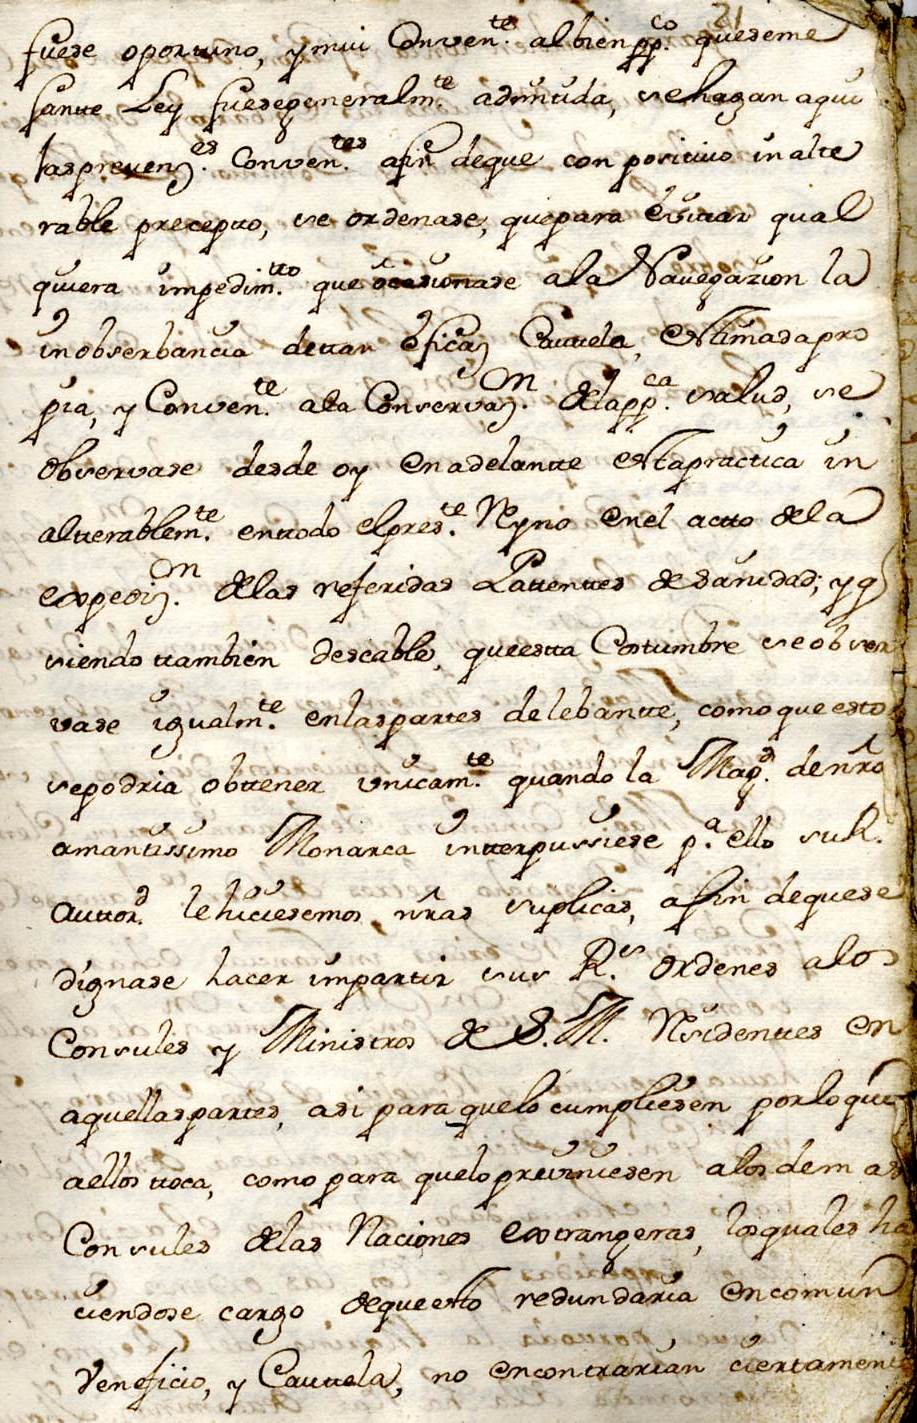 21
fuese oportuno, y mui Conven.te al bien pp.co que seme
jantte Ley fuese generalm.te admitida, se hagan aqui
las prevenz.es Conven.tes a fin de que con positivo inalte
rable precepto, se ordenase, que para evitar qual
quiera impedim.tto que ocasionase a la Navegazion la
inobserbancia de ttan eficaz Cauttela, estimada pro
pia, y Conven.te a la Conservaz.on de la pp.ca salud, se
observase desde oy en adelantte esta practica in
altterablem.te en todo el pres.te Reyno en el actto de la
expediz.on de las referidas Pattenttes de sanidad; y q
siendo ttambien deseable, que estta Costumbre se obser
vase igualm.te en las partes de lebantte, como que esto
se podria obttener unicam.te quando la Mag.d de nrô
amantissimo Monarca intterpussiese p.a ello su R.
auttor.d le hiciesemos nrâs suplicas, a fin de que se
dignase hacer impartir sus R.s ordenes a los
Consules y Ministros de S. M. Residenttes en
aquellas partes, asi para que lo cumpliesen por lo que
a ellos ttoca, como para que lo previniesen a los demas
Consules de las Naciones extrangeras, los quales ha
ciendose cargo de que esto redundaria en comun
veneficio, y Cauttela, no encontrarian ciertament